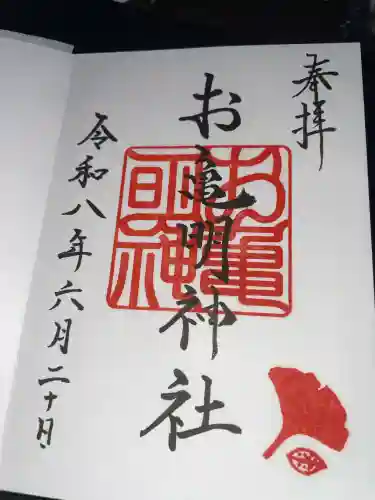 奉拝
お亀明神社
令和八年六月二十日